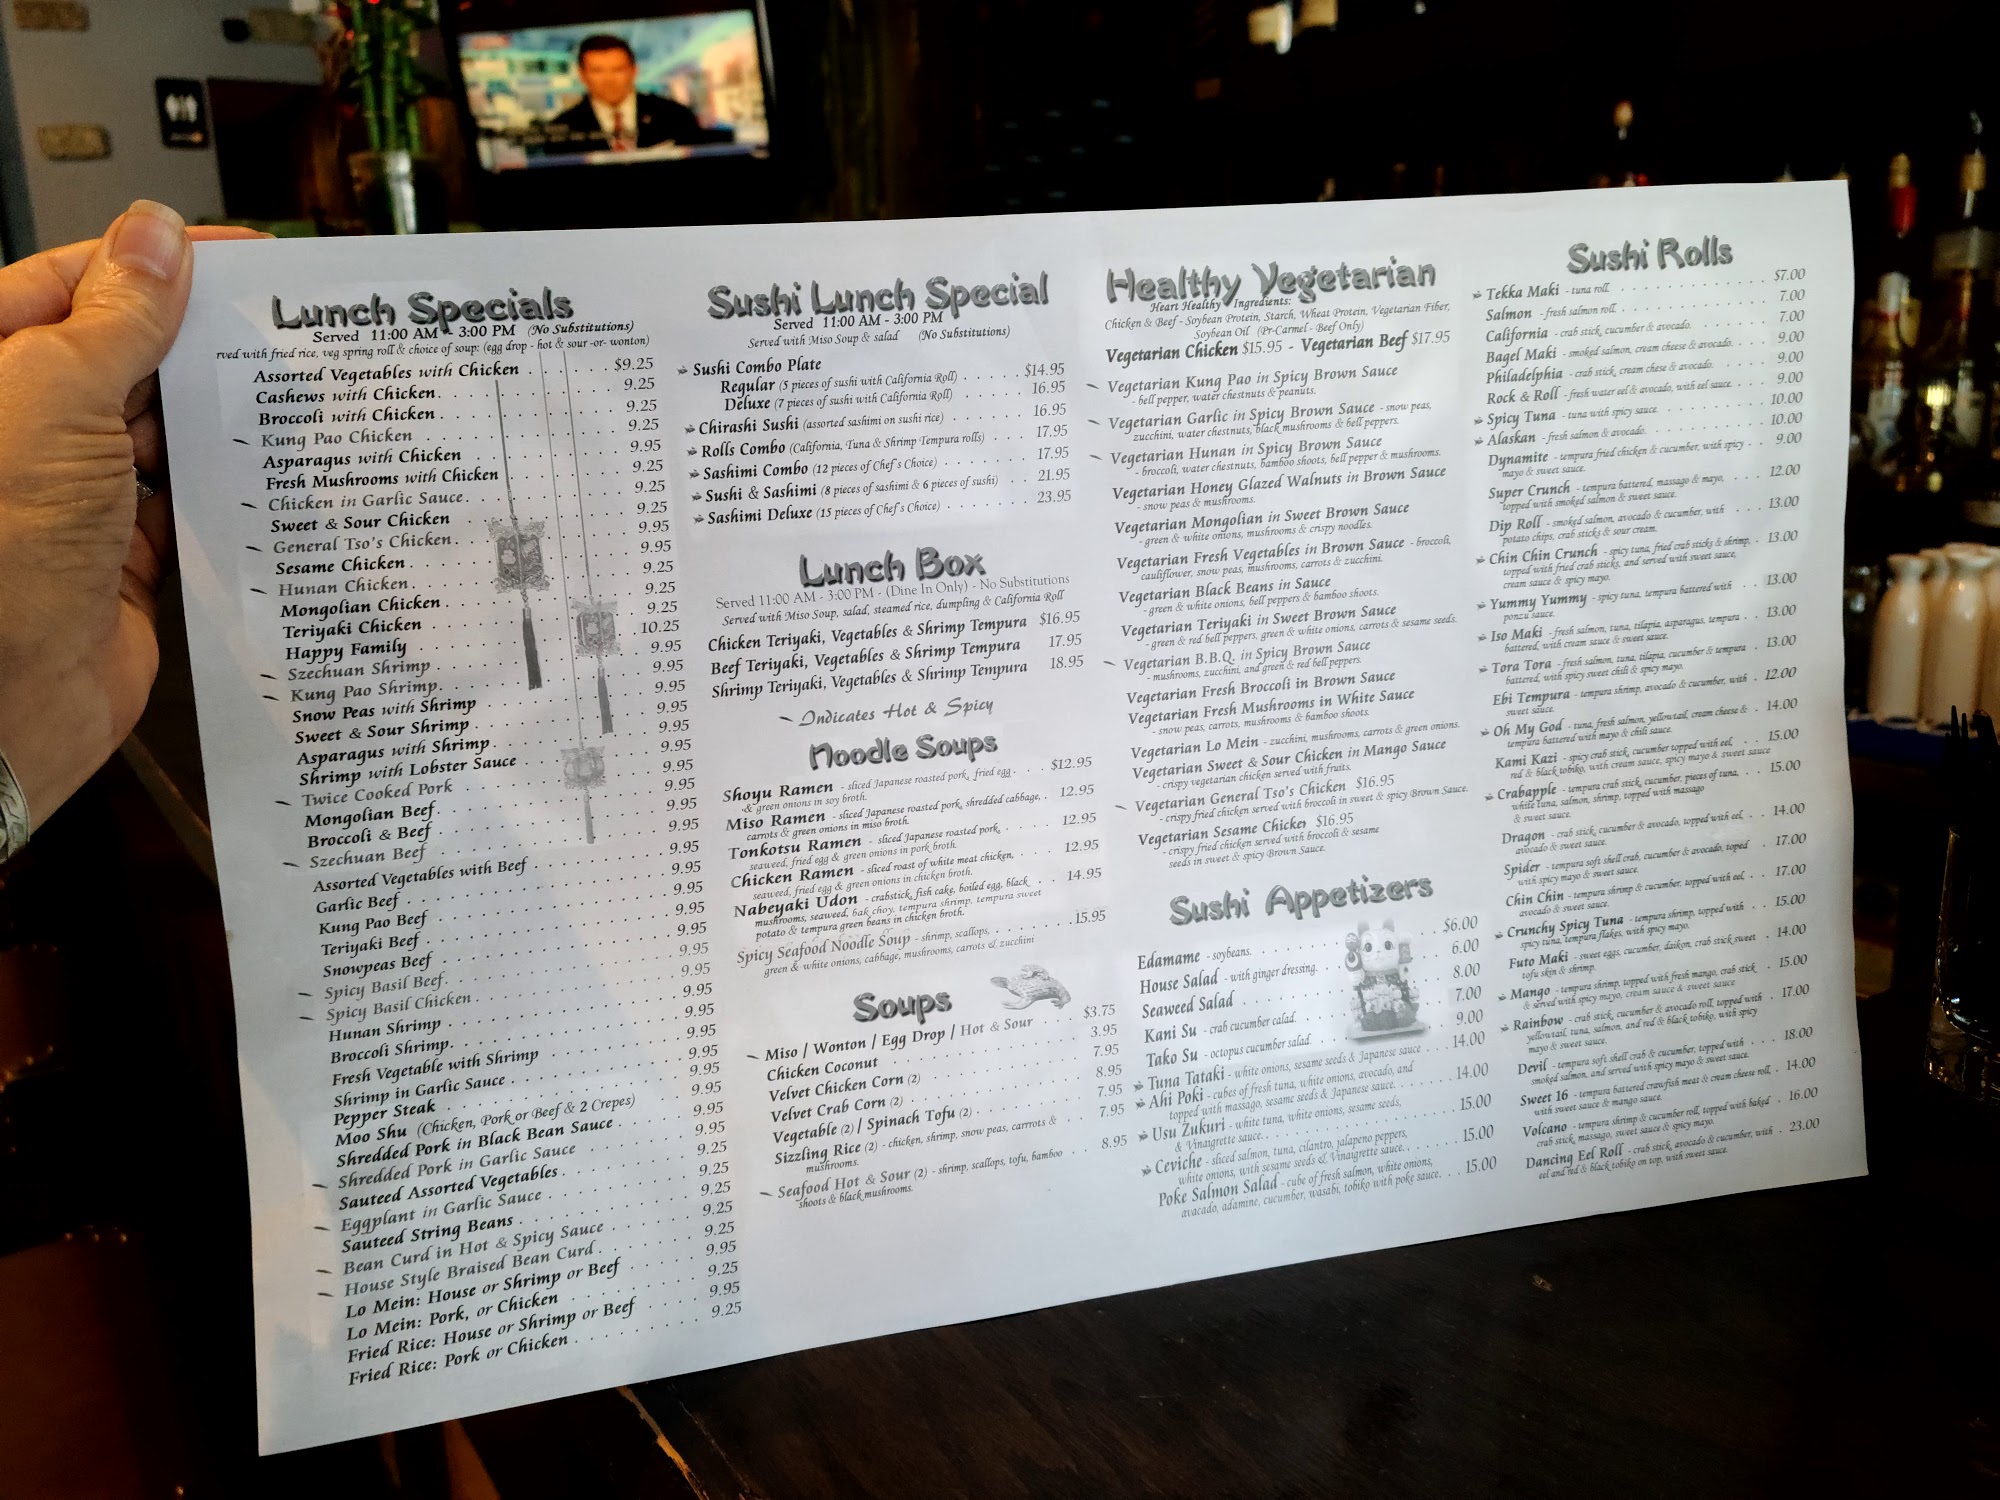 Lunch Specials
Served 11:00 AM - 3:00 PM (No Substitutions)
rved with fried rice, veg spring roll & choice of soup: (egg drop - hot & sour -or- wonton)
Assorted Vegetables with Chicken $9.25
Cashews with Chicken 9.25
Broccoli with Chicken 9.25
Kung Pao Chicken 9.25
Asparagus with Chicken 9.95
Fresh Mushrooms with Chicken 9.25
Chicken in Garlic Sauce 9.25
Sweet & Sour Chicken 9.25
General Tso's Chicken 9.95
Sesame Chicken 9.95
Hunan Chicken 9.25
Mongolian Chicken 9.25
Teriyaki Chicken 9.25
Happy Family 10.25
Szechuan Shrimp 9.95
Kung Pao Shrimp 9.95
Snow Peas with Shrimp 9.95
Sweet & Sour Shrimp 9.95
Asparagus with Shrimp 9.95
Shrimp with Lobster Sauce 9.95
Twice Cooked Pork 9.95
Mongolian Beef 9.95
Broccoli & Beef 9.95
Szechuan Beef 9.95
Assorted Vegetables with Beef 9.95
Garlic Beef 9.95
Kung Pao Beef 9.95
Teriyaki Beef 9.95
Snowpeas Beef 9.95
Spicy Basil Beef 9.95
Spicy Basil Chicken 9.95
Hunan Shrimp 9.95
Broccoli Shrimp 9.95
Fresh Vegetable with Shrimp 9.95
Shrimp in Garlic Sauce 9.95
Pepper Steak 9.95
Moo Shu (Chicken, Pork or Beef & 2 Crepes) 9.95
Shredded Pork in Black Bean Sauce 9.95
Shredded Pork in Garlic Sauce 9.95
Sauteed Assorted Vegetables 9.25
Eggplant in Garlic Sauce 9.25
Sauteed String Beans 9.25
Bean Curd in Hot & Spicy Sauce 9.25
House Style Braised Bean Curd 9.25
Lo Mein: House or Shrimp or Beef 9.95
Lo Mein: Pork, or Chicken 9.25
Fried Rice: House or Shrimp or Beef 9.95
Fried Rice: Pork or Chicken 9.25
Sushi Lunch Special
Served 11:00 AM - 3:00 PM
Served with Miso Soup & salad (No Substitutions)
Sushi Combo Plate
Regular (5 pieces of sushi with California Roll) $14.95
Deluxe (7 pieces of sushi with California Roll) 16.95
Chirashi Sushi (assorted sashimi on sushi rice) 16.95
Rolls Combo (California, Tuna & Shrimp Tempura rolls) 17.95
Sashimi Combo (12 pieces of Chef's Choice) 17.95
Sushi & Sashimi (8 pieces of sashimi & 6 pieces of sushi) 21.95
Sashimi Deluxe (15 pieces of Chef's Choice) 23.95
Lunch Box
Served 11:00 AM - 3:00 PM - (Dine In Only) - No Substitutions
Served with Miso Soup, salad, steamed rice, dumpling & California Roll
Chicken Teriyaki, Vegetables & Shrimp Tempura $16.95
Beef Teriyaki, Vegetables & Shrimp Tempura 17.95
Shrimp Teriyaki, Vegetables & Shrimp Tempura 18.95
Indicates Hot & Spicy
Noodle Soups
Shoyu Ramen - sliced Japanese roasted pork, fried egg $12.95
& green onions in soy broth.
Miso Ramen - sliced Japanese roasted pork, shredded cabbage, 12.95
carrots & green onions in miso broth.
Tonkotsu Ramen - sliced Japanese roasted pork, 12.95
seaweed, fried egg & green onions in pork broth.
Chicken Ramen - sliced roast of white meat chicken, 12.95
seaweed, fried egg & green onions in chicken broth.
Nabeyaki Udon - crabstick, fish cake, boiled egg, black 14.95
mushrooms, seaweed, bak choy, tempura shrimp, tempura sweet
potato & tempura green beans in chicken broth.
Spicy Seafood Noodle Soup - shrimp, scallops, 15.95
green & white onions, cabbage, mushrooms, carrots & zucchini
Soups
Miso / Wonton / Egg Drop / Hot & Sour $3.75
Chicken Coconut 3.95
Velvet Chicken Corn (2) 7.95
Velvet Crab Corn (2) 8.95
Vegetable (2) / Spinach Tofu (2) 7.95
Sizzling Rice (2) - chicken, shrimp, snow peas, carrots & 7.95
mushrooms.
Seafood Hot & Sour (2) - shrimp, scallops, tofu, bamboo 8.95
shoots & black mushrooms.
Healthy Vegetarian
Heart Healthy Ingredients:
Chicken & Beef - Soybean Protein, Starch, Wheat Protein, Vegetarian Fiber,
Soybean Oil (Pr-Carmel - Beef Only)
Vegetarian Chicken $15.95 - Vegetarian Beef $17.95
Vegetarian Kung Pao in Spicy Brown Sauce
- bell pepper, water chestnuts & peanuts.
Vegetarian Garlic in Spicy Brown Sauce - snow peas,
zucchini, water chestnuts, black mushrooms & bell peppers.
Vegetarian Hunan in Spicy Brown Sauce
- broccoli, water chestnuts, bamboo shoots, bell pepper & mushrooms.
Vegetarian Honey Glazed Walnuts in Brown Sauce
- snow peas & mushrooms.
Vegetarian Mongolian in Sweet Brown Sauce
- green & white onions, mushrooms & crispy noodles.
Vegetarian Fresh Vegetables in Brown Sauce - broccoli,
cauliflower, snow peas, mushrooms, carrots & zucchini.
Vegetarian Black Beans in Sauce
- green & white onions, bell peppers & bamboo shoots.
Vegetarian Teriyaki in Sweet Brown Sauce
- green & red bell peppers, green & white onions, carrots & sesame seeds.
Vegetarian B.B.Q. in Spicy Brown Sauce
- mushrooms, zucchini, and green & red bell peppers.
Vegetarian Fresh Broccoli in Brown Sauce
Vegetarian Fresh Mushrooms in White Sauce
- snow peas, carrots, mushrooms & bamboo shoots.
Vegetarian Lo Mein - zucchini, mushrooms, carrots & green onions.
Vegetarian Sweet & Sour Chicken in Mango Sauce
- crispy vegetarian chicken served with fruits.
Vegetarian General Tso's Chicken $16.95
- crispy fried chicken served with broccoli in sweet & spicy Brown Sauce.
Vegetarian Sesame Chicken $16.95
- crispy fried chicken served with broccoli & sesame
seeds in sweet & spicy Brown Sauce.
Sushi Appetizers
Edamame - soybeans. $6.00
House Salad - with ginger dressing. 6.00
Seaweed Salad 8.00
Kani Su - crab cucumber calad. 7.00
Tako Su - octopus cucumber salad. 9.00
Tuna Tataki - white onions, sesame seeds & Japanese sauce 14.00
Ahi Poki - cubes of fresh tuna, white onions, avocado, and
topped with massago, sesame seeds & Japanese sauce. 14.00
Usu Zukuri - white tuna, white onions, sesame seeds,
& Vinaigrette sauce. 15.00
Ceviche - sliced salmon, tuna, cilantro, jalapeno peppers,
white onions, with sesame seeds & Vinaigrette sauce. 15.00
Poke Salmon Salad - cube of fresh salmon, white onions,
avacado, adamine, cucumber, wasabi, tobiko with poke sauce. 15.00
Sushi Rolls
Tekka Maki - tuna roll. $7.00
Salmon - fresh salmon roll. 7.00
California - crab stick, cucumber & avocado. 7.00
Bagel Maki - smoked salmon, cream cheese & avocado. 9.00
Philadelphia - crab stick, cream chese & avocado. 9.00
Rock & Roll - fresh water eel & avocado, with eel sauce. 9.00
Spicy Tuna - tuna with spicy sauce. 10.00
Alaskan - fresh salmon & avocado. 10.00
Dynamite - tempura fried chicken & cucumber, with spicy 9.00
mayo & sweet sauce.
Super Crunch - tempura battered, massago & mayo, 12.00
topped with smoked salmon & sweet sauce.
Dip Roll - smoked salmon, avocado & cucumber, with 13.00
potato chips, crab sticks & sour cream.
Chin Chin Crunch - spicy tuna, fried crab sticks & shrimp, 13.00
topped with fried crab sticks, and served with sweet sauce,
cream sauce & spicy mayo.
Yummy Yummy - spicy tuna, tempura battered with 13.00
ponzu sauce.
Iso Maki - fresh salmon, tuna, tilapia, asparagus, tempura 13.00
battered, with cream sauce & sweet sauce.
Tora Tora - fresh salmon, tuna, tilapia, cucumber & tempura 13.00
battered, with spicy sweet chili & spicy mayo.
Ebi Tempura - tempura shrimp, avocado & cucumber, with 12.00
sweet sauce.
Oh My God - tuna, fresh salmon, yellowtail, cream cheese & 14.00
tempura battered with mayo & chili sauce.
Kami Kazi - spicy crab stick, cucumber topped with eel, 15.00
red & black tobiko, with cream sauce, spicy mayo & sweet sauce
Crabapple - tempura crab stick, cucumber, pieces of tuna, 15.00
white tuna, salmon, shrimp, topped with massago
& sweet sauce.
Dragon - crab stick, cucumber & avocado, topped with eel, 14.00
avocado & sweet sauce.
Spider - tempura soft shell crab, cucumber & avocado, toped 17.00
with spicy mayo & sweet sauce.
Chin Chin - tempura shrimp & cucumber, topped with eel, 17.00
avocado & sweet sauce.
Crunchy Spicy Tuna - tempura shrimp, topped with 15.00
spicy tuna, tempura flakes, with spicy mayo.
Futo Maki - sweet eggs, cucumber, daikon, crab stick sweet 14.00
tofu skin & shrimp.
Mango - tempura shrimp, topped with fresh mango, crab stick 15.00
& served with spicy mayo, cream sauce & sweet sauce
Rainbow - crab stick, cucumber & avocado roll, topped with 17.00
yellowtail, tuna, salmon, and red & black tobiko, with spicy
mayo & sweet sauce.
Devil - tempura soft shell crab & cucumber, topped with 18.00
smoked salmon, and served with spicy mayo & sweet sauce.
Sweet 16 - tempura battered crawfish meat & cream cheese roll, 14.00
with sweet sauce & mango sauce.
Volcano - tempura shrimp & cucumber roll, topped with baked 16.00
crab stick, massago, sweet sauce & spicy mayo.
Dancing Eel Roll - crab stick, avocado & cucumber, with 23.00
eel and red & black tobiko on top, with sweet sauce.